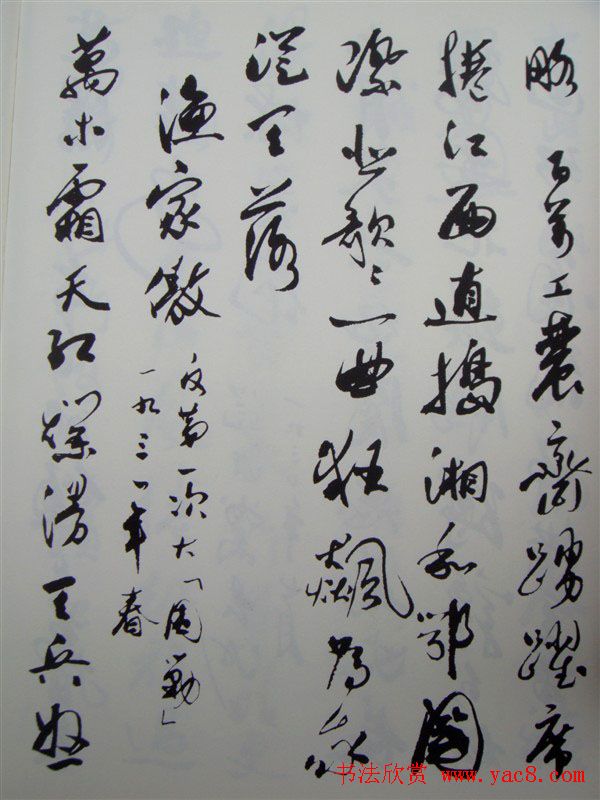 略 百萬工農齊踴躍席
捲江西直搗湘和鄂國
際悲歌々一曲狂飆為我
從天落
漁家傲 反第一次大「圍勦」
一九三一年春
萬木霜天紅爛漫天兵怒
书法欣赏 www.yac8.com